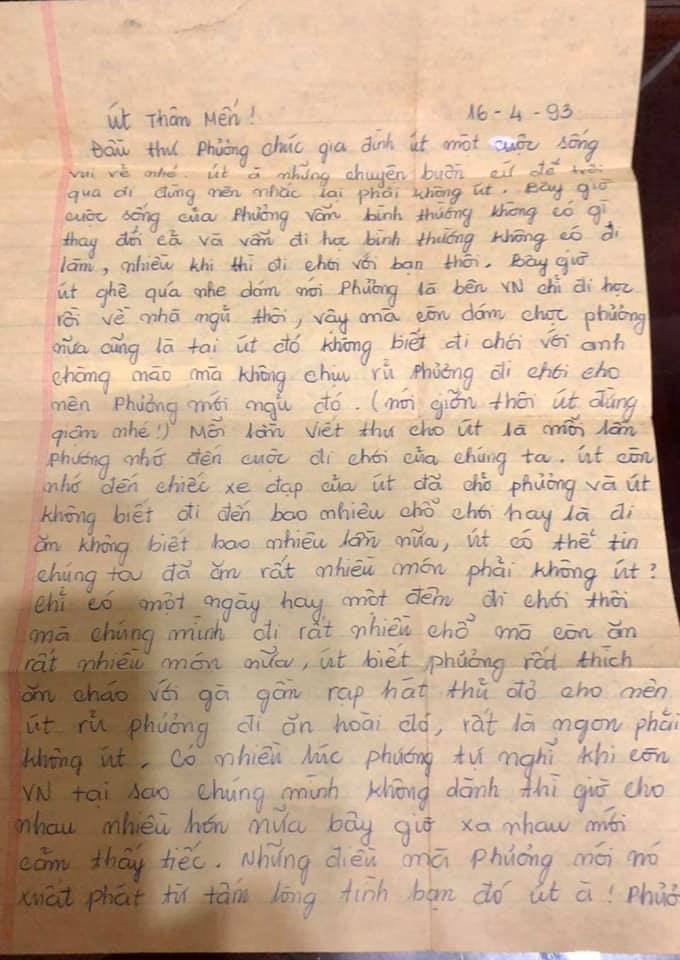 Út Thân Mến! 16-4-93
Đầu thư Phưởng chúc gia đình út một cuộc sống
vui vẻ nhé. út à những chuyện buồn cứ để trôi
qua đi đừng nên nhắc lại phải không út. Bây giờ
cuộc sống của Phưởng vẫn bình thường không có gì
thay đổi cả và vẫn đi học bình thường không có đi
làm, nhiều khi thì đi chơi với bạn thôi. Bây giờ
út ghê quá nhe dám nói Phưởng là bên VN chỉ đi học
rồi về nhà ngủ thôi, vậy mà còn dám chọc phưởng
nữa cũng là tại út đó không biết đi chơi với anh
chàng nào mà không chịu rủ Phưởng đi chơi cho
nên Phưởng mới ngủ đó. (nói giỡn thôi út đừng
giận nhé!) Mỗi lần viết thư cho út là mỗi lần
phưởng nhớ đến cuộc đi chơi của chúng ta. út còn
nhớ đến chiếc xe đạp của út đã chở phưởng và út
không biết đi đến bao nhiêu chổ chơi hay là đi
ăn không biết bao nhiêu lần nữa, út có thể tin
chúng ta đã ăn rất nhiều món phải không út?
chỉ có một ngày hay một đêm đi chơi thôi
mà chúng mình đi rất nhiều chổ mà còn ăn
rất nhiều món nữa, út biết phưởng rất thích
ăn cháo với gà gần rạp hát thủ đô cho nên
út rủ phưởng đi ăn hoài đó, rất là ngon phải
không út. Có nhiều lúc phưởng tự nghĩ khi còn
VN tại sao chúng mình không dành thì giờ cho
nhau nhiều hơn nữa bây giờ xa nhau mới
cảm thấy tiếc. Những điều mà Phưởng nói nó
xuất phát từ tấm lòng tình bạn đó út à! Phưở